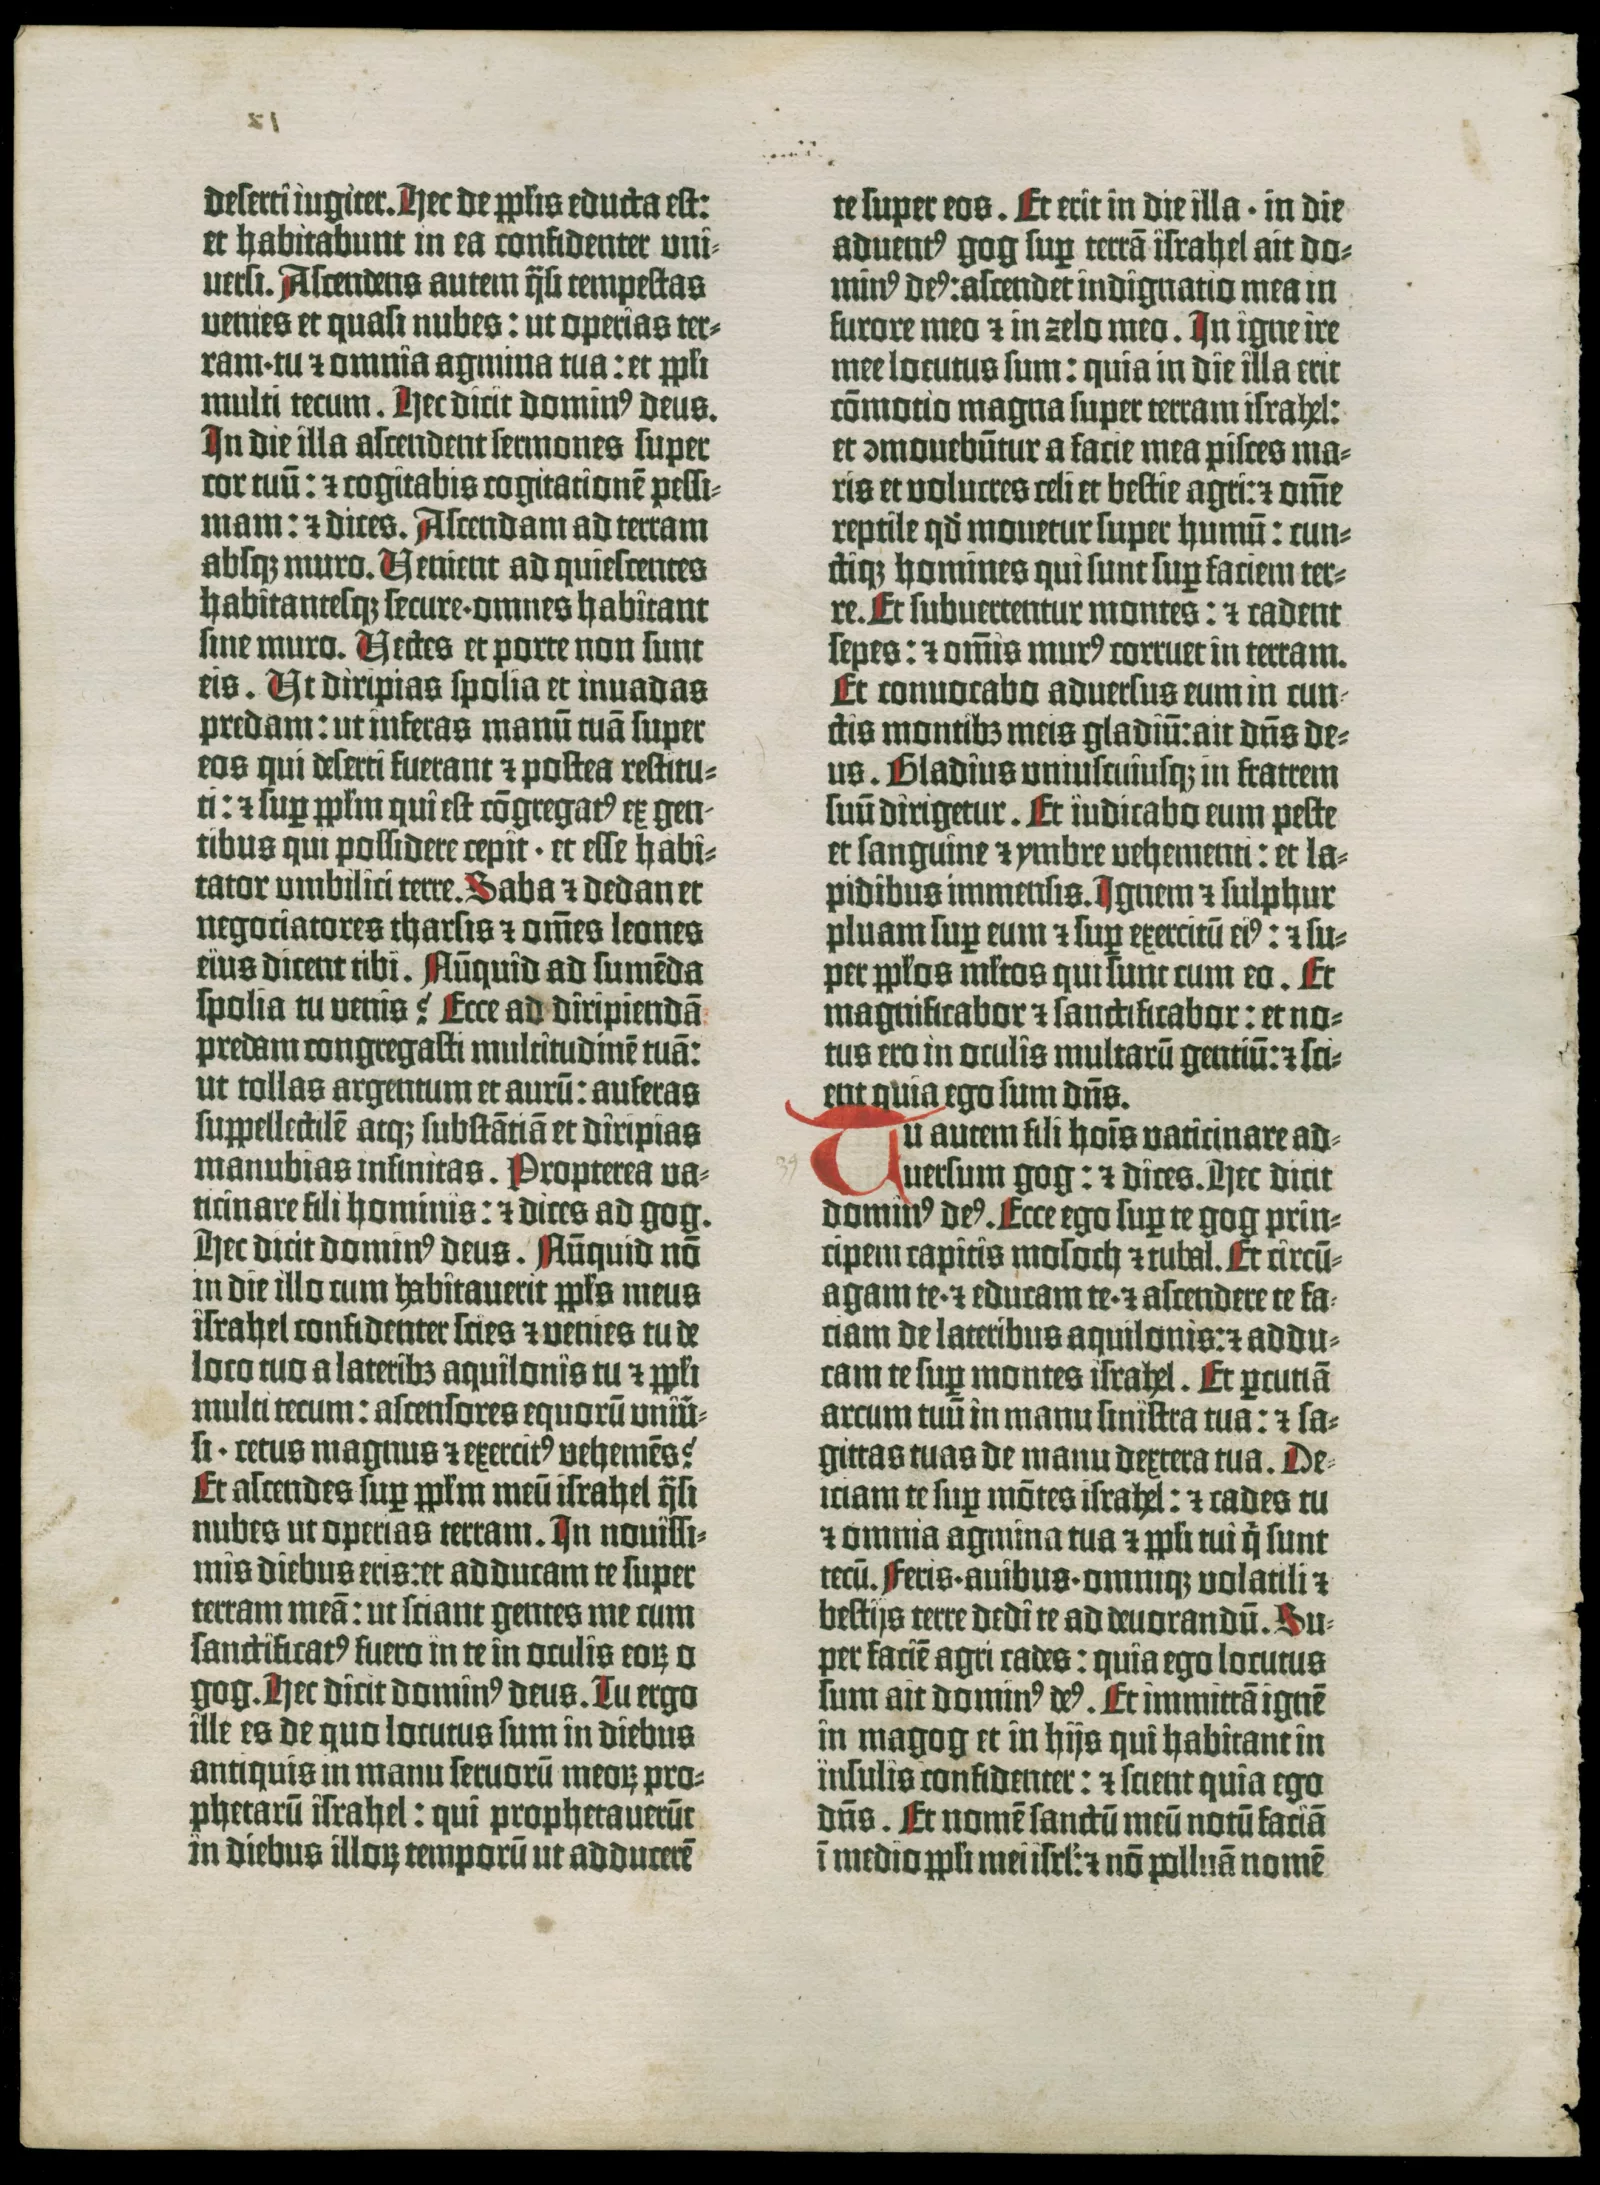 21
deserti iugiter. Hec de pplis educta est:
et habitabunt in ea confidenter uni⸗
uersi. Ascendens autem q̄si tempestas
venies et quasi nubes : ut operias ter⸗
ram·tu ⁊ omnia agmina tua : et ppli
multi tecum . Hec dicit domin⁹ deus.
In die illa ascendent sermones super
cor tuū : ⁊ cogitabis cogitationē pessi⸗
mam : ⁊ dices. Ascendam ad terram
absqꝫ muro. Uenient ad quiescentes
habitantesqꝫ secure·omnes habitant
sine muro. Uectes et porte non sunt
eis . Ut diripias spolia et inuadas
predam : ut inferas manū tuā super
eos qui deserti fuerant ⁊ postea restitu⸗
ti : ⁊ suꝑ pplm qui est cōgregat⁹ ex gen⸗
tibus qui possidere cepit · et esse habi⸗
tator umbilici terre. Saba ⁊ dedan et
negociatores tharsis ⁊ om̄es leones
eius dicent tibi . Nūquid ad sumēda
spolia tu venis ? Ecce ad diripiendā
predam congregasti multitudinē tuā:
ut tollas argentum et aurū : auferas
suppellectilē atqꝫ substātiā et diripias
manubias infinitas . Propterea va⸗
ticinare fili hominis : ⁊ dices ad gog.
Hec dicit domin⁹ deus . Nūquid nō
in die illo cum habitauerit ppls meus
israhel confidenter scies ⁊ venies tu de
loco tuo a lateribꝫ aquilonis tu ⁊ ppli
multi tecum : ascensores equorū uniū⸗
si · cetus magnus ⁊ exercit⁹ vehemēs?
Et ascendes suꝑ pplm meū israhel q̄si
nubes ut operias terram . In nouissi⸗
mis diebus eris:et adducam te super
terram meā : ut sciant gentes me cum
sanctificat⁹ fuero in te in oculis eoꝝ o
gog. Hec dicit domin⁹ deus . Tu ergo
ille es de quo locutus sum in diebus
antiquis in manu seruorū meoꝝ pro⸗
phetarū israhel : qui prophetauerūt
in diebus illoꝝ temporū ut adducerē
te super eos . Et erit in die illa · in die
aduent⁹ gog suꝑ terrā israhel ait do⸗
min⁹ de⁹:ascendet indignatio mea in
furore meo ⁊ in zelo meo . In igne ire
mee locutus sum : quia in die illa erit
cōmotio magna super terram israhel:
et ↄmouebūtur a facie mea pisces ma⸗
ris et volucres celi et bestie agri:⁊ om̄e
reptile qđ mouetur super humū : cun⸗
ctiqꝫ homines qui sunt suꝑ faciem ter⸗
re. Et subuertentur montes : ⁊ cadent
sepes : ⁊ om̄is mur⁹ corruet in terram.
Et conuocabo aduersus eum in cun⸗
ctis montibꝫ meis gladiū:ait dn̄s de⸗
us . Gladius uniuscuiusqꝫ in fratrem
suū dirigetur . Et iudicabo eum peste
et sanguine ⁊ ymbre vehementi : et la⸗
pidibus immensis. Ignem ⁊ sulphur
pluam suꝑ eum ⁊ suꝑ exercitū ei⁹ : ⁊ su⸗
per pplos ml̄tos qui sunt cum eo . Et
magnificabor ⁊ sanctificabor : et no⸗
tus ero in oculis multarū gentiū:⁊ sci⸗
ent quia ego sum dn̄s.
Tu autem fili hoīs vaticinare ad⸗
39 uersum gog : ⁊ dices. Hec dicit
domin⁹ de⁹. Ecce ego suꝑ te gog prin⸗
cipem capitis mosoch ⁊ tubal. Et circū⸗
agam te·⁊ educam te·⁊ ascendere te fa⸗
ciam de lateribus aquilonis:⁊ addu⸗
cam te suꝑ montes israhel . Et ꝑcutiā
arcum tuū in manu sinistra tua : ⁊ sa⸗
gittas tuas de manu dextera tua . De⸗
iciam te suꝑ mōtes israhel : ⁊ cades tu
⁊ omnia agmina tua ⁊ ppli tui q̄ sunt
tecū. Feris·auibus·omniqꝫ volatili ⁊
bestijs terre dedi te ad deuorandū. Su⸗
per faciē agri cades : quia ego locutus
sum ait domin⁹ de⁹ . Et immittā ignē
in magog et in hijs qui habitant in
insulis confidenter : ⁊ scient quia ego
dn̄s . Et nomē sanctū meū notū faciā
ī medio ppli mei isrl:⁊ nō polluā nomē